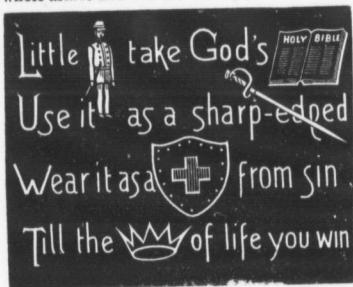 Little take God's HOLY BIBLE
Use it as a sharp-edged
Wear it as a from sin
Till the of life you win